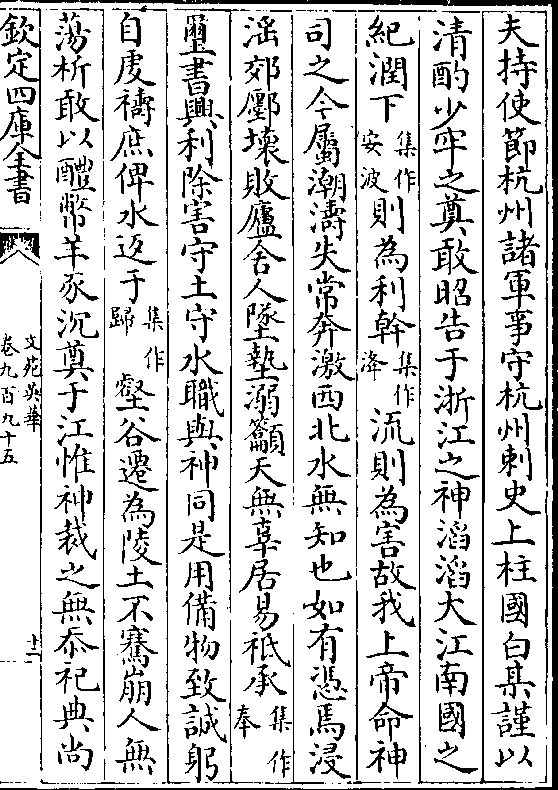 夫持使節杭州諸軍事守杭州刺史上柱國白某謹以
清酌少牢之奠敢昭告于浙江之神滔滔大江南國之
紀潤下集作安波則為利幹集作洚流則為害故我上帝命神
司之今屬潮濤失常奔激西北水無知也如有憑焉浸
淫郊鄽壞敗廬舍人墜墊溺籲天無辜居易祗承集作奉
璽書興利除害守土守水職與神同是用備物致誠躬
自虔禱庶俾水返于集作歸壑谷遷為陵土不騫崩人無
蕩析敢以醴幣羊豕沉奠于江惟神裁之無忝祀典尚
欽定四庫全書
文苑英華
卷九百九十五
十二